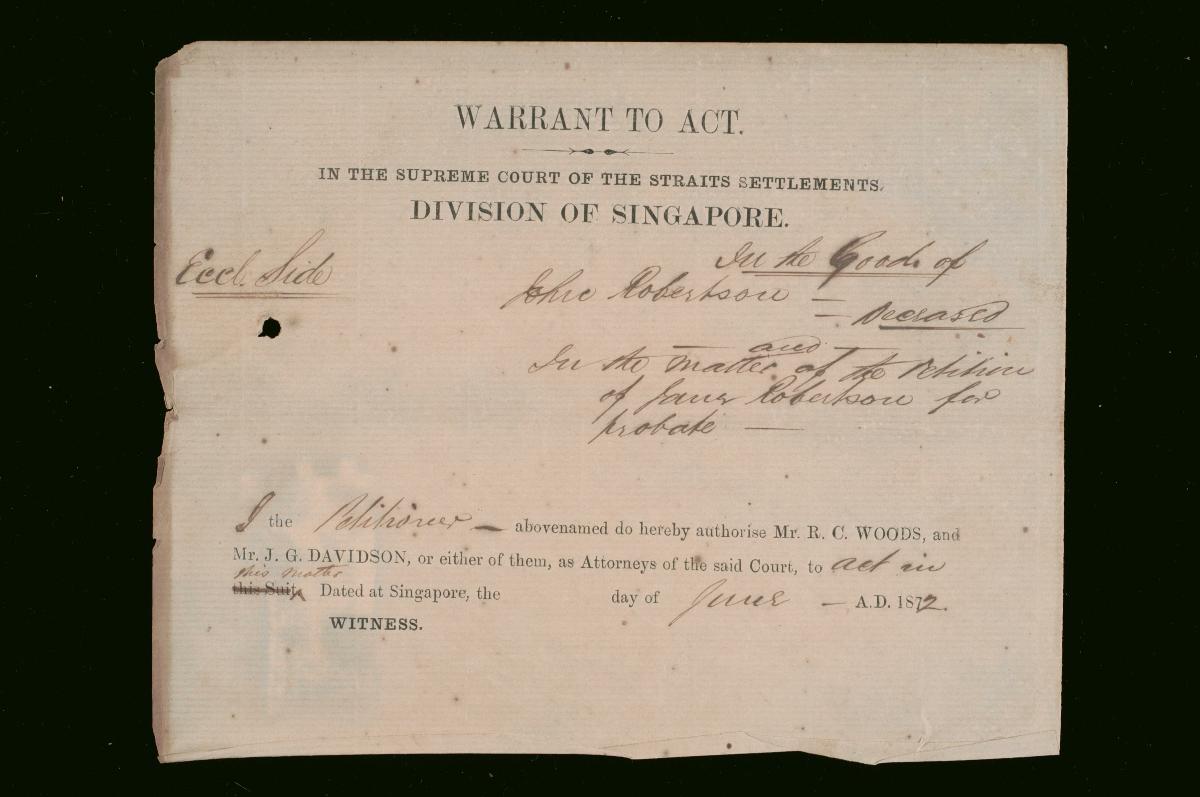 WARRANT TO ACT.
IN THE SUPREME COURT OF THE STRAITS SETTLEMENTS.
DIVISION OF SINGAPORE.
Eccl. Side
In the Goods of
Robertson —
Deceased
— and —
In the matter of the Petition
of Jane Robertson for
probate —
I the Petitioner — abovenamed do hereby authorise Mr. R. C. WOODS, and
Mr. J. G. DAVIDSON, or either of them, as Attorneys of the said Court, to act in
this matter
this Suit Dated at Singapore, the day of June — A.D. 1872.
WITNESS.